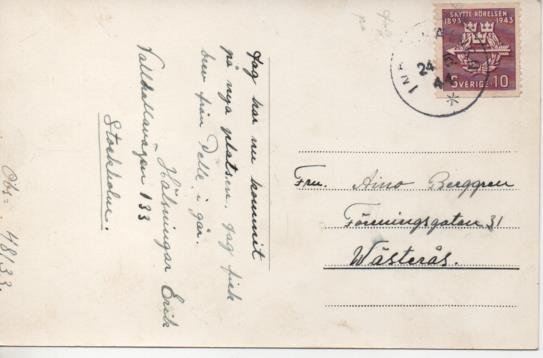 Jag har nu kommit
på nya platsen. Jag fick
brev från Pelle i går.
Hälsningar Erik
Valhallavägen 133
Stockholm.
Obs: 48133.
SKYTTE RÖRELSEN
1893 1943
SVERIGE 10
24
44
Fru. Aino Berggren
Föreningsgatan 31
Wästerås.